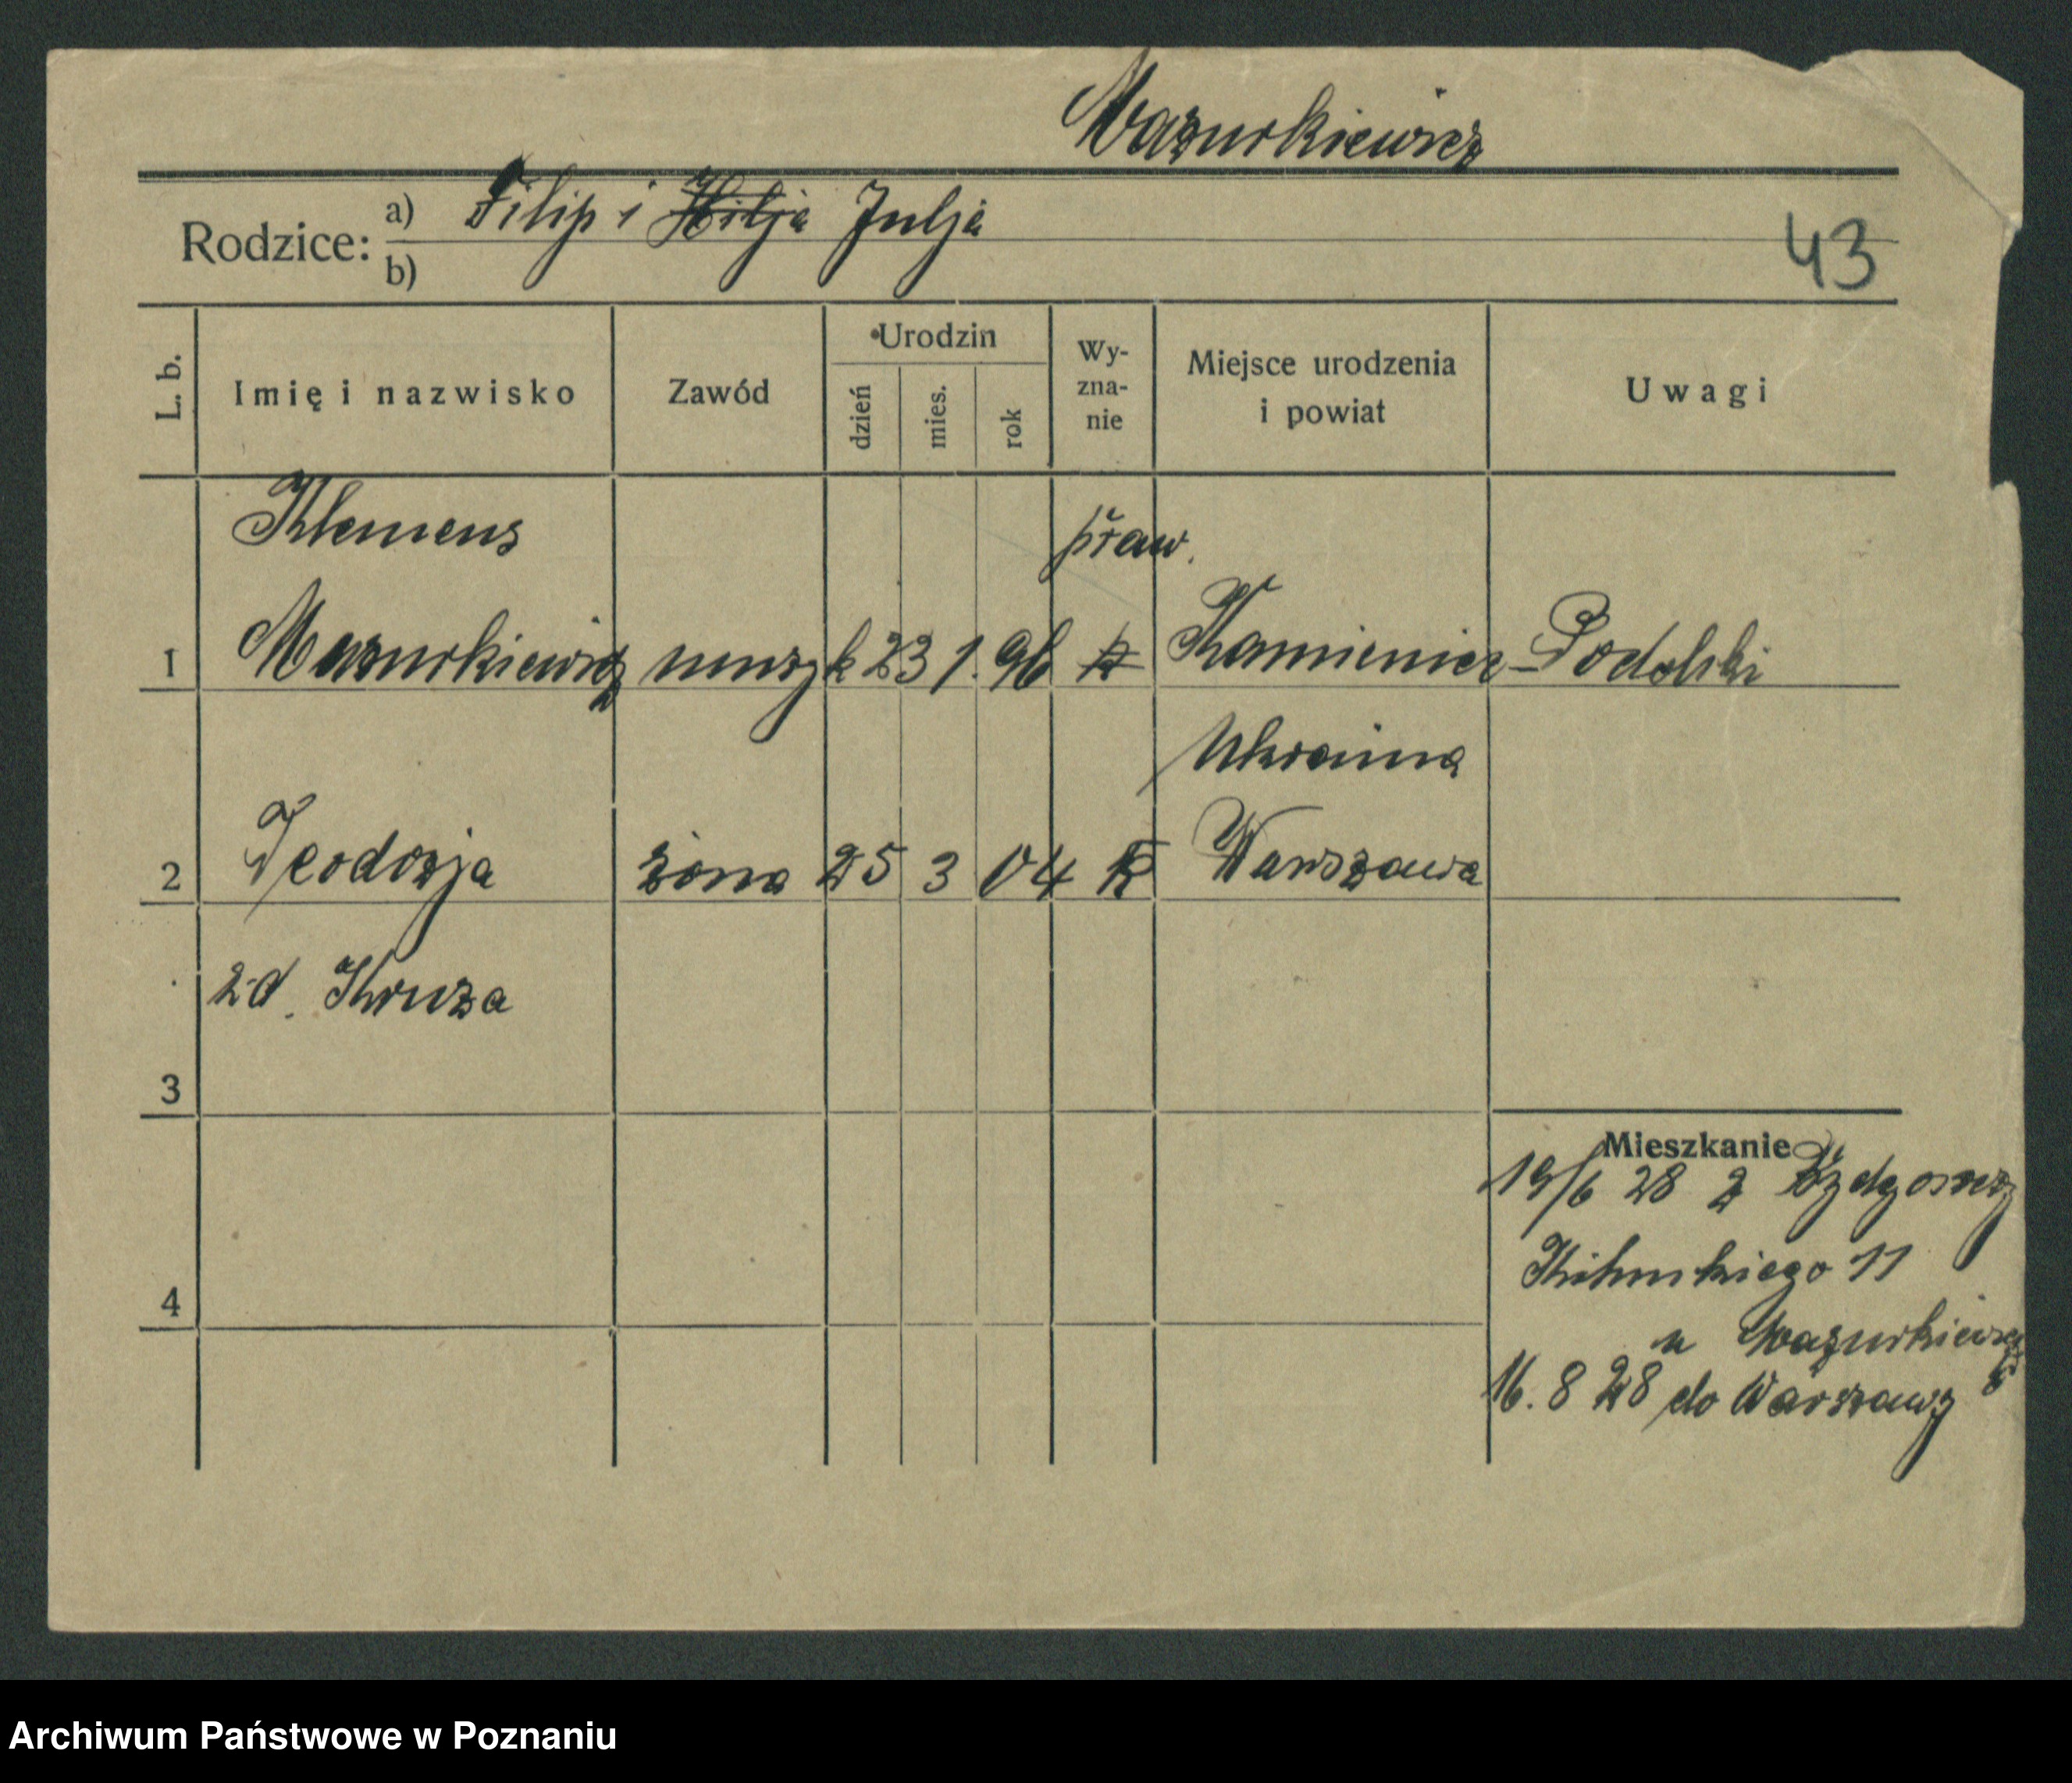 Mazurkiewicz
Rodzice: a) Filip i Hilja Julja
b)
43
L. b. Imię i nazwisko Zawód Urodzin dzień mies. rok Wy-zna-nie Miejsce urodzenia i powiat Uwagi
Klemens praw.
1 Mazurkiewicz muzyk 23 1. 96 k Kamieniec-Podolski
Ukraina
2 Teodozja żona 25 3 04 k Warszawa
z d. Kruza
3
Mieszkanie
19/6 28 z Bydgoszczy
Kilińskiego 11
4
u Mazurkiewicz
16. 8 28 do Warszawy
Archiwum Państwowe w Poznaniu